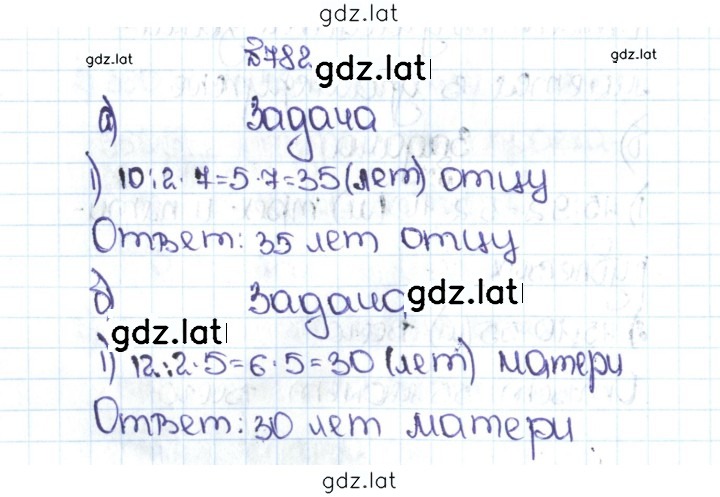 gdz.lat
gdz.lat №782 gdz.lat
gdz.lat
а) Задача
1) 10:2·7=5·7=35(лет) отцу
Ответ: 35 лет отцу
б) Задача
gdz.lat
gdz.lat
1) 12:2·5=6·5=30 (лет) матери
Ответ: 30 лет матери
gdz.lat